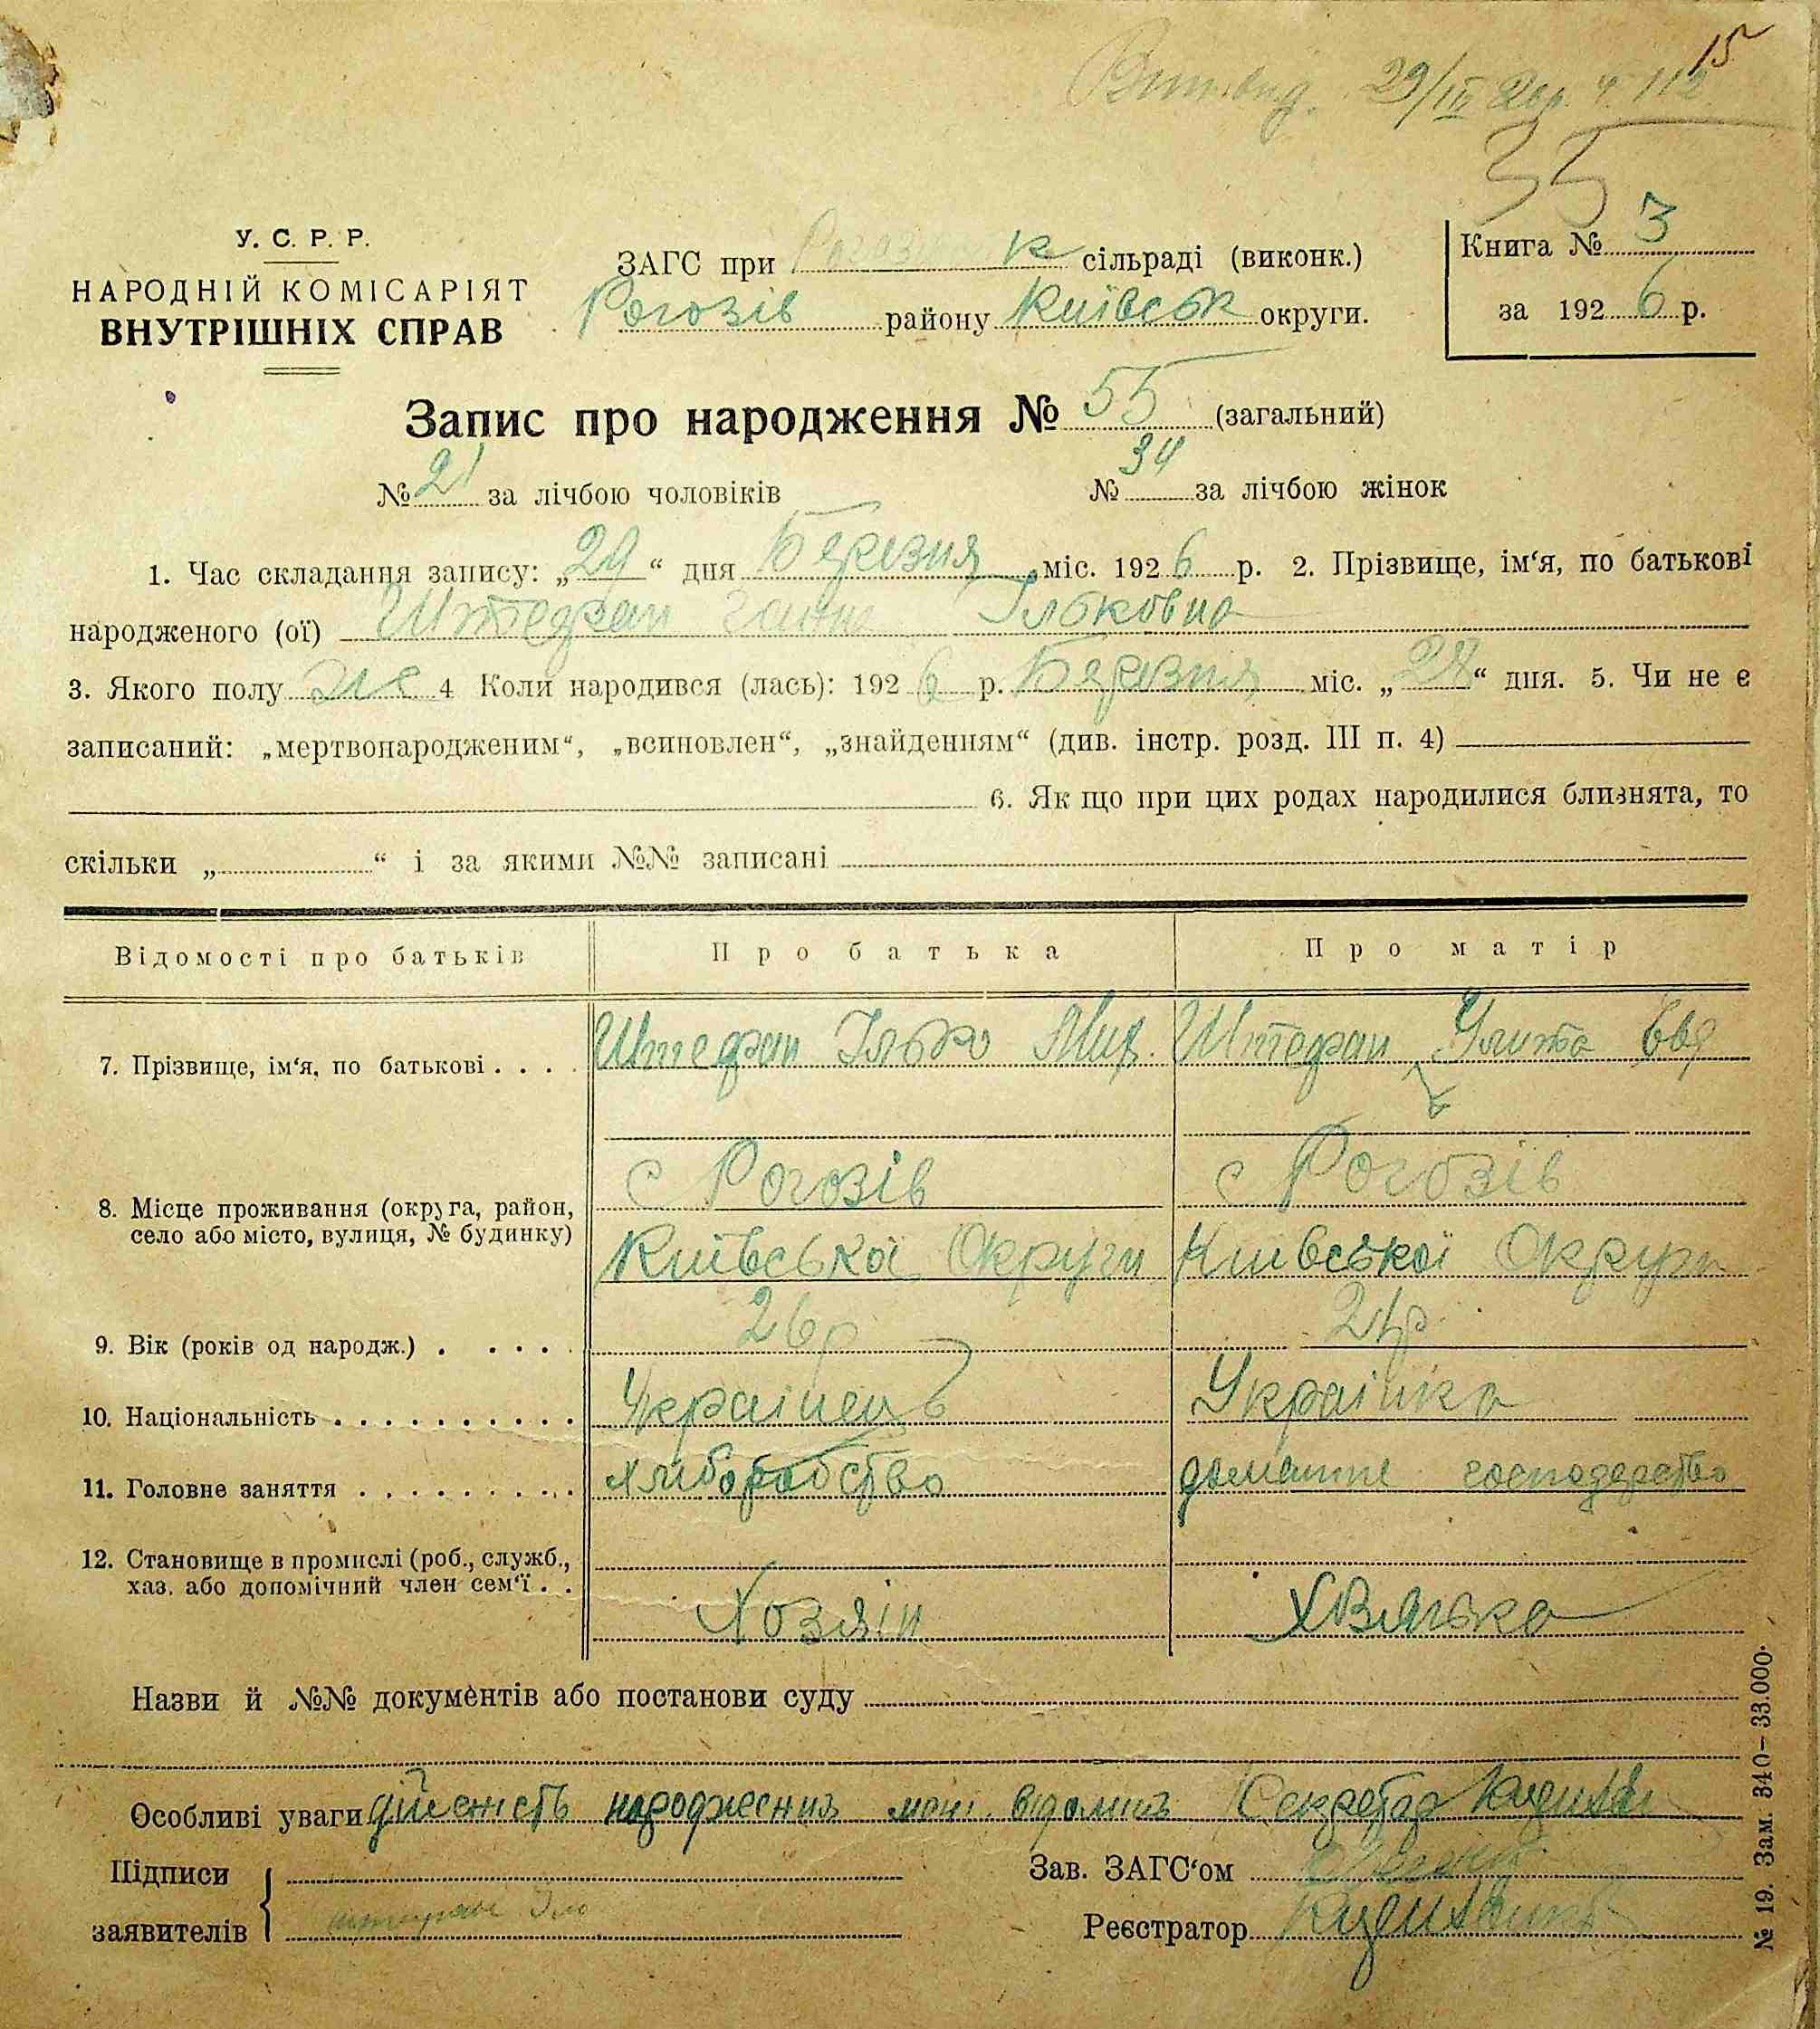 15
29/III
35
У. С. Р. Р.
НАРОДНІЙ КОМІСАРІЯТ
ВНУТРІШНІХ СПРАВ
ЗАГС при к сільраді (виконк.)
Рогозів району Київськ округи.
Книга № 3
за 1926 р.
Запис про народження № 55 (загальний)
№ 21 за лічбою чоловіків № 34 за лічбою жінок
1. Час складання запису: „29“ дня Березня міс. 1926 р. 2. Прізвище, ім‘я, по батькові
народженого (ої) Штефан Ганна Ільковна
3. Якого полу же 4 Коли народився (лась): 1926 р. Березня міс. „28“ дня. 5. Чи не є
записаний: „мертвонародженим“, „всиновлен“, „знайденням“ (див. інстр. розд. III п. 4)
6. Як що при цих родах народилися близнята, то
скільки „ “ і за якими №№ записані
Відомості про батьків Про батька Про матір
7. Прізвище, ім‘я, по батькові . . . . Штефан Ілько Мих. Штефан Улита Евд
8. Місце проживання (округа, район, с Рогозів с Рогозів
село або місто, вулиця, № будинку) Київської Округи Київської Округи
9. Вік (років од народж.) . . . . . 26 р 24 р.
10. Національність . . . . . . . . . . Українець Українка
11. Головне заняття . . . . . . . . . . хліборобство домашнє господарство
12. Становище в промислі (роб., служб.,
хаз. або допомічний член сем‘ї . . Хозяін
Назви й №№ документів або постанови суду
Особливі уваги дійсність народження мені відомить Секретар
Підписи
заявителів
Зав. ЗАГС‘ом
Реєстратор
№ 19. Зам. 340—33.000.